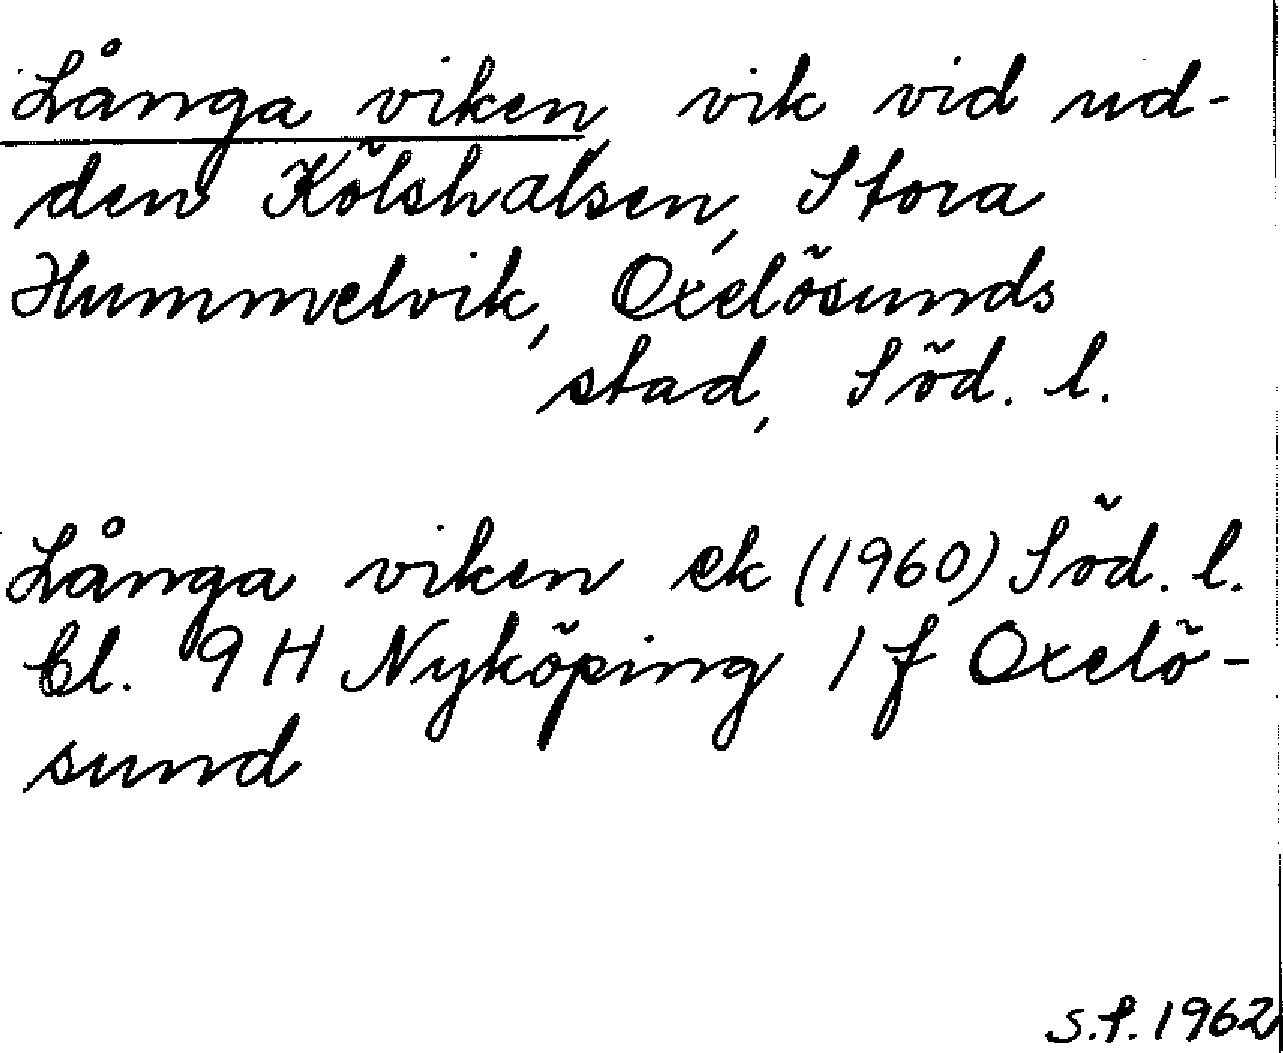 Långa viken, vik vid ud-
den Kölshalsen, Stora
Hummelvik, Oxelösunds
stad, Söd. l.
Långa viken ek (1960) Söd. l.
bl. 9 H Nyköping 1 f Oxelö-
sund
S.S. 1962